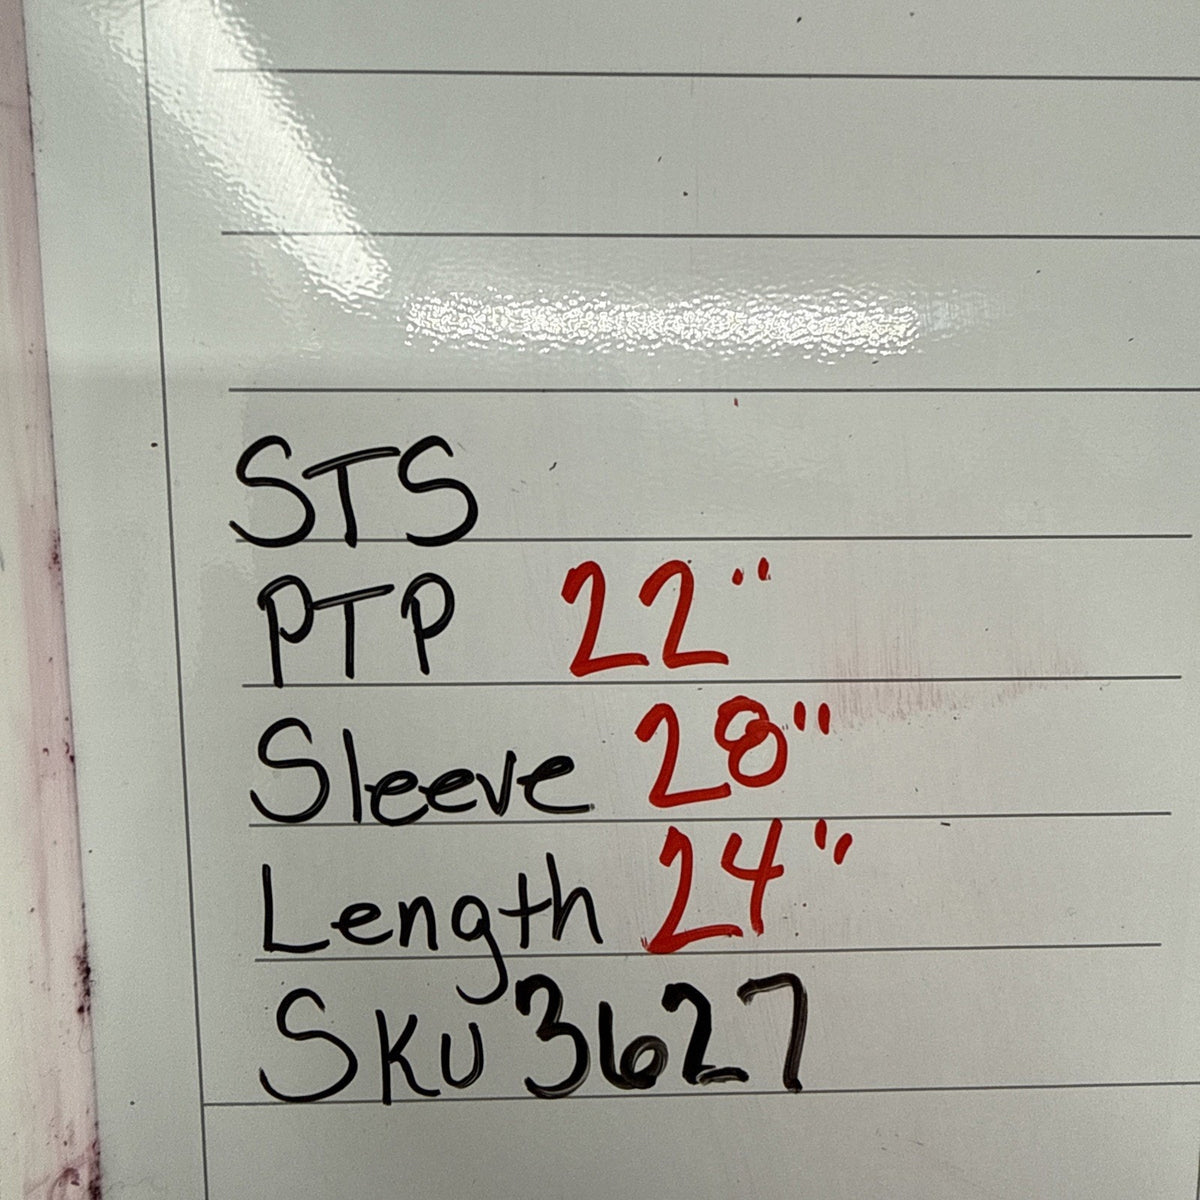 STS
PTP 22"
Sleeve 28"
Length 24"
SKU 3627